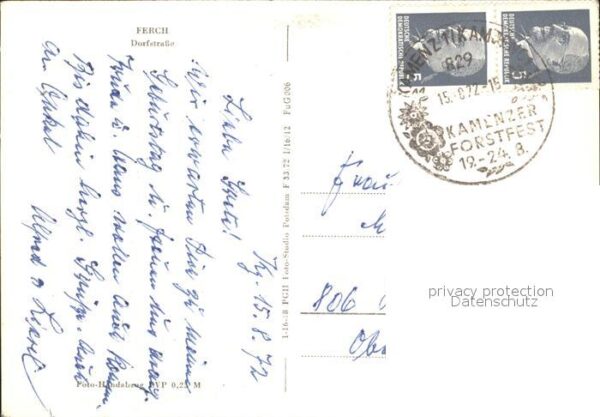 FERCH
Dorfstraße
Kg. 15.8.72
Liebe Grete!
Wir erwarten Dich zu meinem
Geburtstag u. freuen uns
Trude u. Hans wollen auch kommen.
Bis dahin herzl. Grüße. Auch
Alfred u.
Foto-Handabzug EVP 0,25 M
1-16-18 PGH Foto-Studio Potsdam F 33/72 I/16/12 FuG 006
DEUTSCHE
DEMOKRATISCHE REPUBLIK
5
DEUTSCHE
DEMOKRATISCHE REPUBLIK
5
KAMENZ 1 (KAMENZ)
829
15.8.72-15
KAMENZER
FORSTFEST
19.-24.8.
Frau
M
806
Obe
privacy protection
Datenschutz